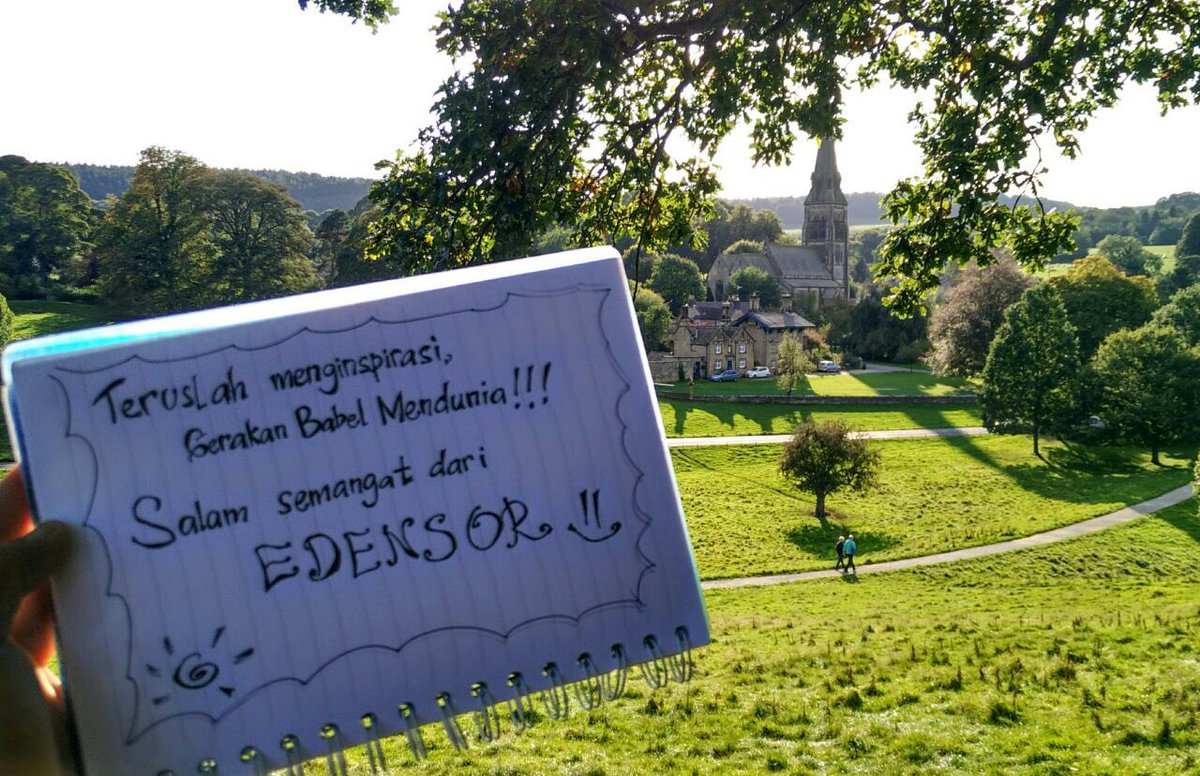 Teruslah menginspirasi,
Gerakan Babel Mendunia!!!
Salam semangat dari
EDENSOR